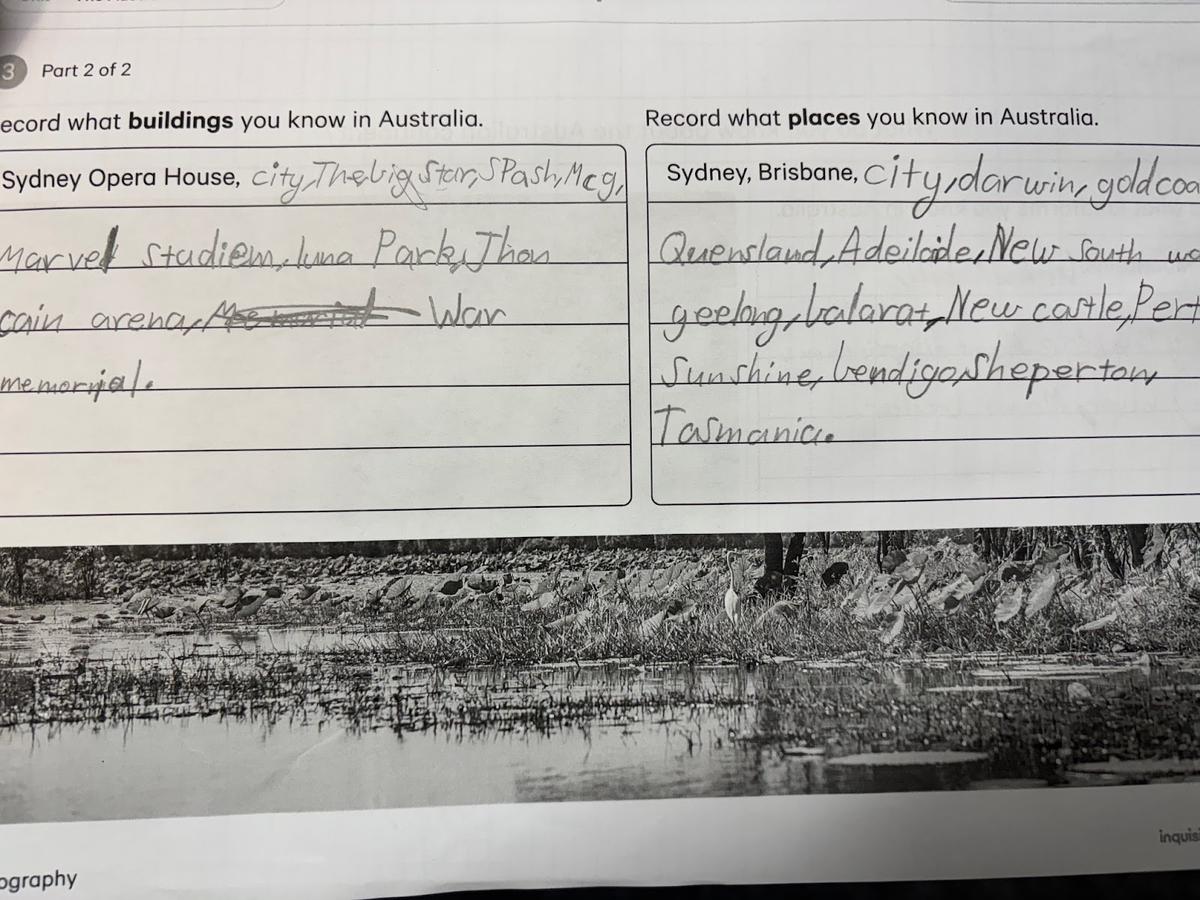 3 Part 2 of 2
ecord what buildings you know in Australia.
Sydney Opera House, city, The big Star, SPash, Mcg,
Marvel Stadiem, luna Park, Jhon
cain arena, War
memorijal.
Record what places you know in Australia.
Sydney, Brisbane, city, darwin, goldcoa
Quensland, Adeilaide, New South wa
geelong, balarat, New castle, Pert
Sunshine, bendigo, Sheperton,
Tasmania.
inquis
ography